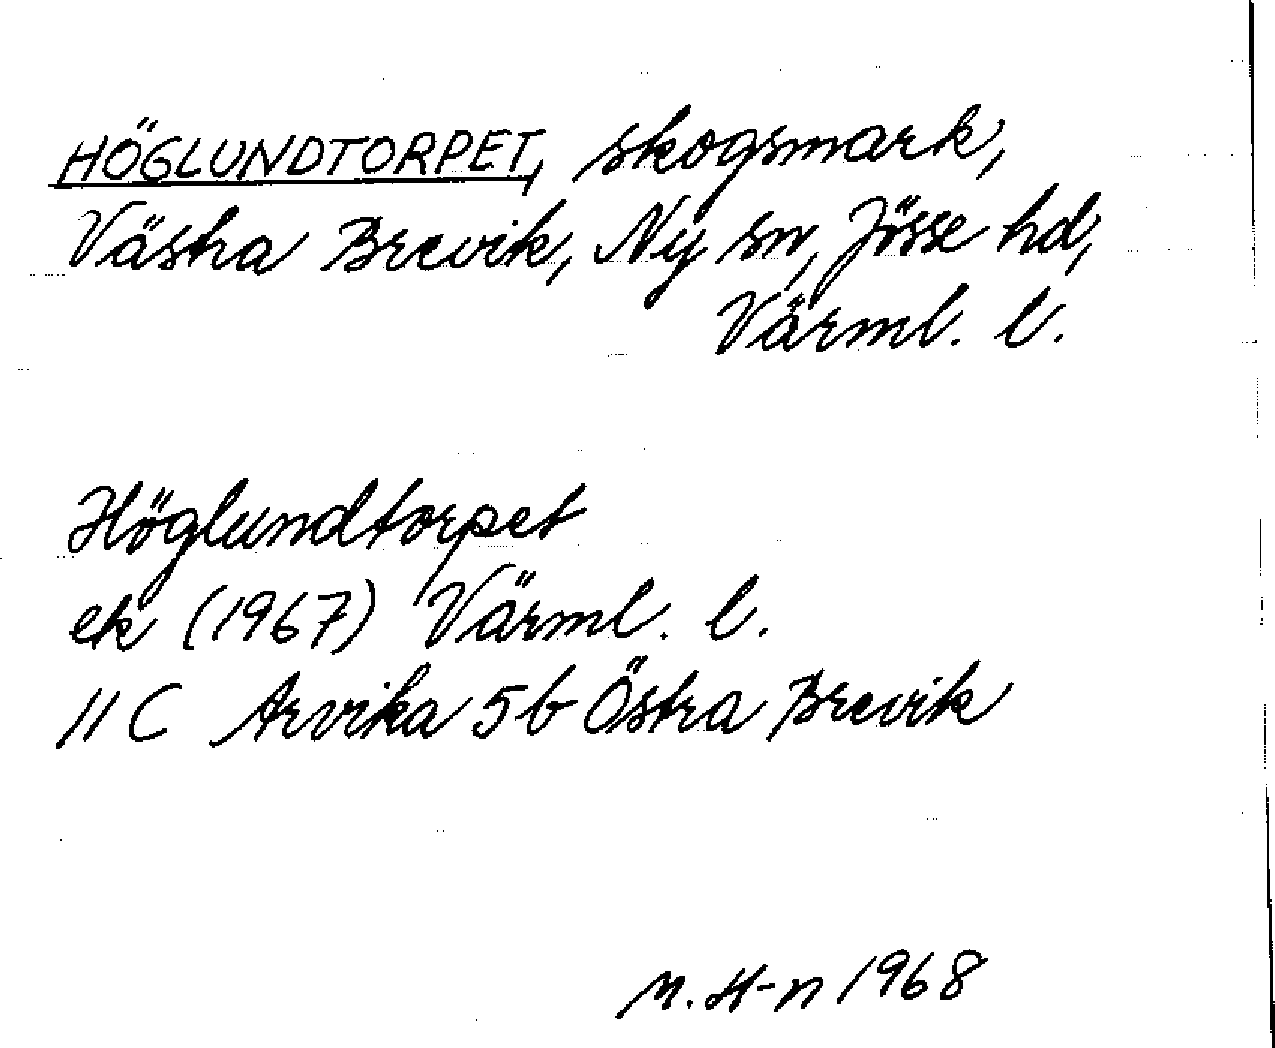 HÖGLUNDTORPET, skogsmark,
Västra Brevik, Ny sn, Jösse hd,
Värml. l.
Höglundtorpet
ek (1967) Värml. l.
11 C Arvika 5 b Östra Brevik
M. H-n 1968